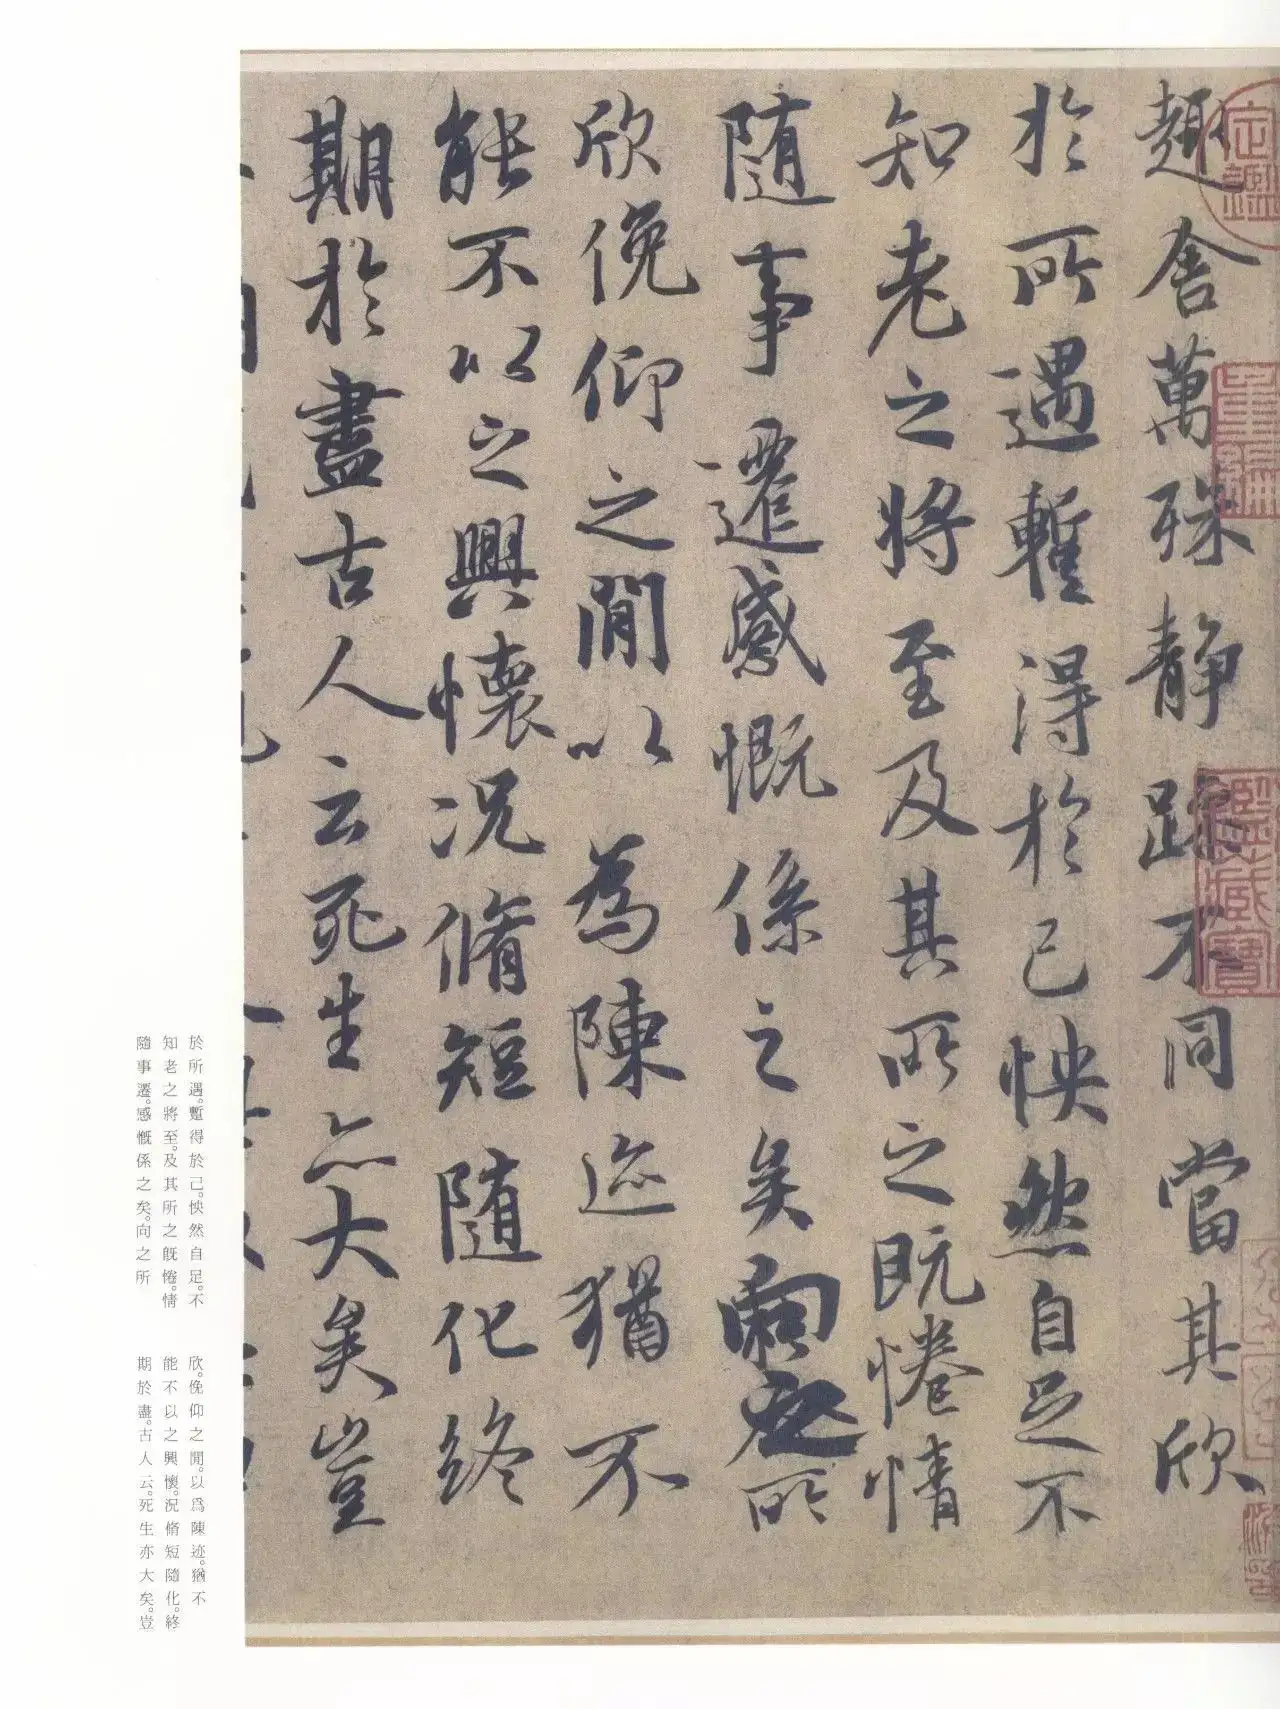 趣舍萬殊静躁不同當其欣
於所遇蹔得於己怏然自足不
知老之將至及其所之既惓情
随事遷感慨係之矣向之所
欣俛仰之閒以為陳迹猶不
能不以之興懷況脩短随化終
期於盡古人云死生亦大矣豈
於所遇。蹔得於己。怏然自足。不
知老之將至。及其所之旣惓。情
隨事遷。感慨係之矣。向之所
欣。俛仰之閒。以爲陳迹。猶不
能不以之興懷。況脩短隨化。終
期於盡。古人云。死生亦大矣。豈